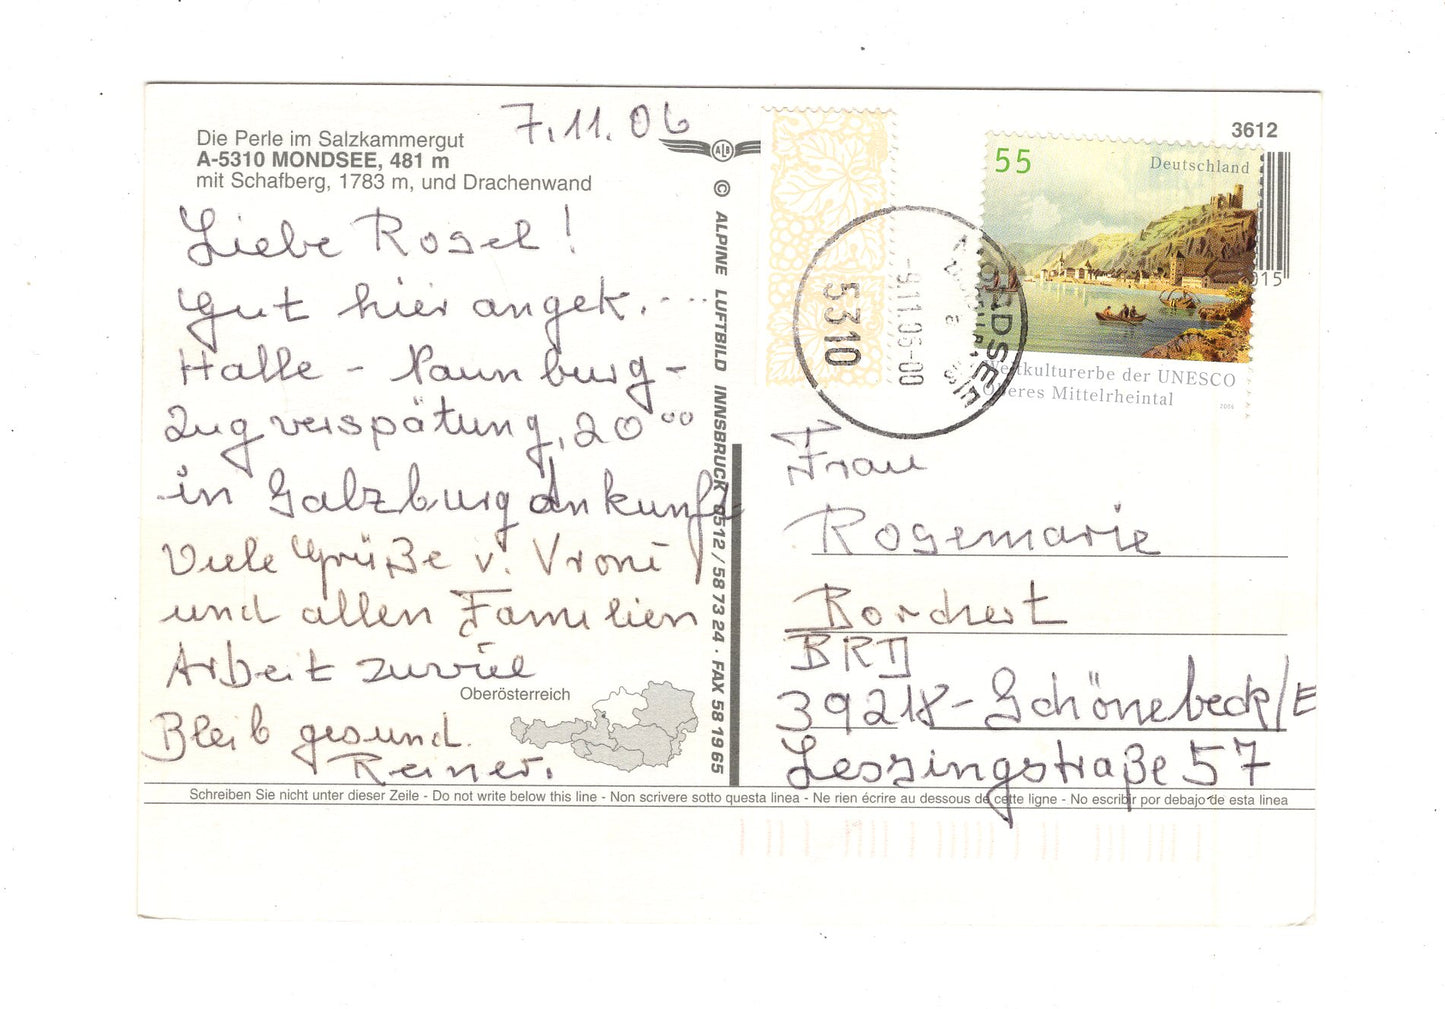 7.11.06
Die Perle im Salzkammergut
A-5310 MONDSEE, 481 m
mit Schafberg, 1783 m, und Drachenwand
Liebe Rosel!
Gut hier angek. ...
Halle - Naunburg -
Zugverspätung, 20 00
in Salzburg Ankunft
Viele Grüße v. Vroni
und allen Familien
Arbeit zuviel
Oberösterreich
Bleib gesund.
Reiner.
ALB
© ALPINE LUFTBILD INNSBRUCK 0512 / 58 73 24 · FAX 58 19 65
3612
55
Deutschland
015
Weltkulturerbe der UNESCO
Oberes Mittelrheintal
2006
5310
-9.11.06-00
MONDSEE
Frau
Rosemarie
Borchert
BRD
39218 - Schönebeck/E
Lessingstraße 57
Schreiben Sie nicht unter dieser Zeile - Do not write below this line - Non scrivere sotto questa linea - Ne rien écrire au dessous de cette ligne - No escribir por debajo de esta linea